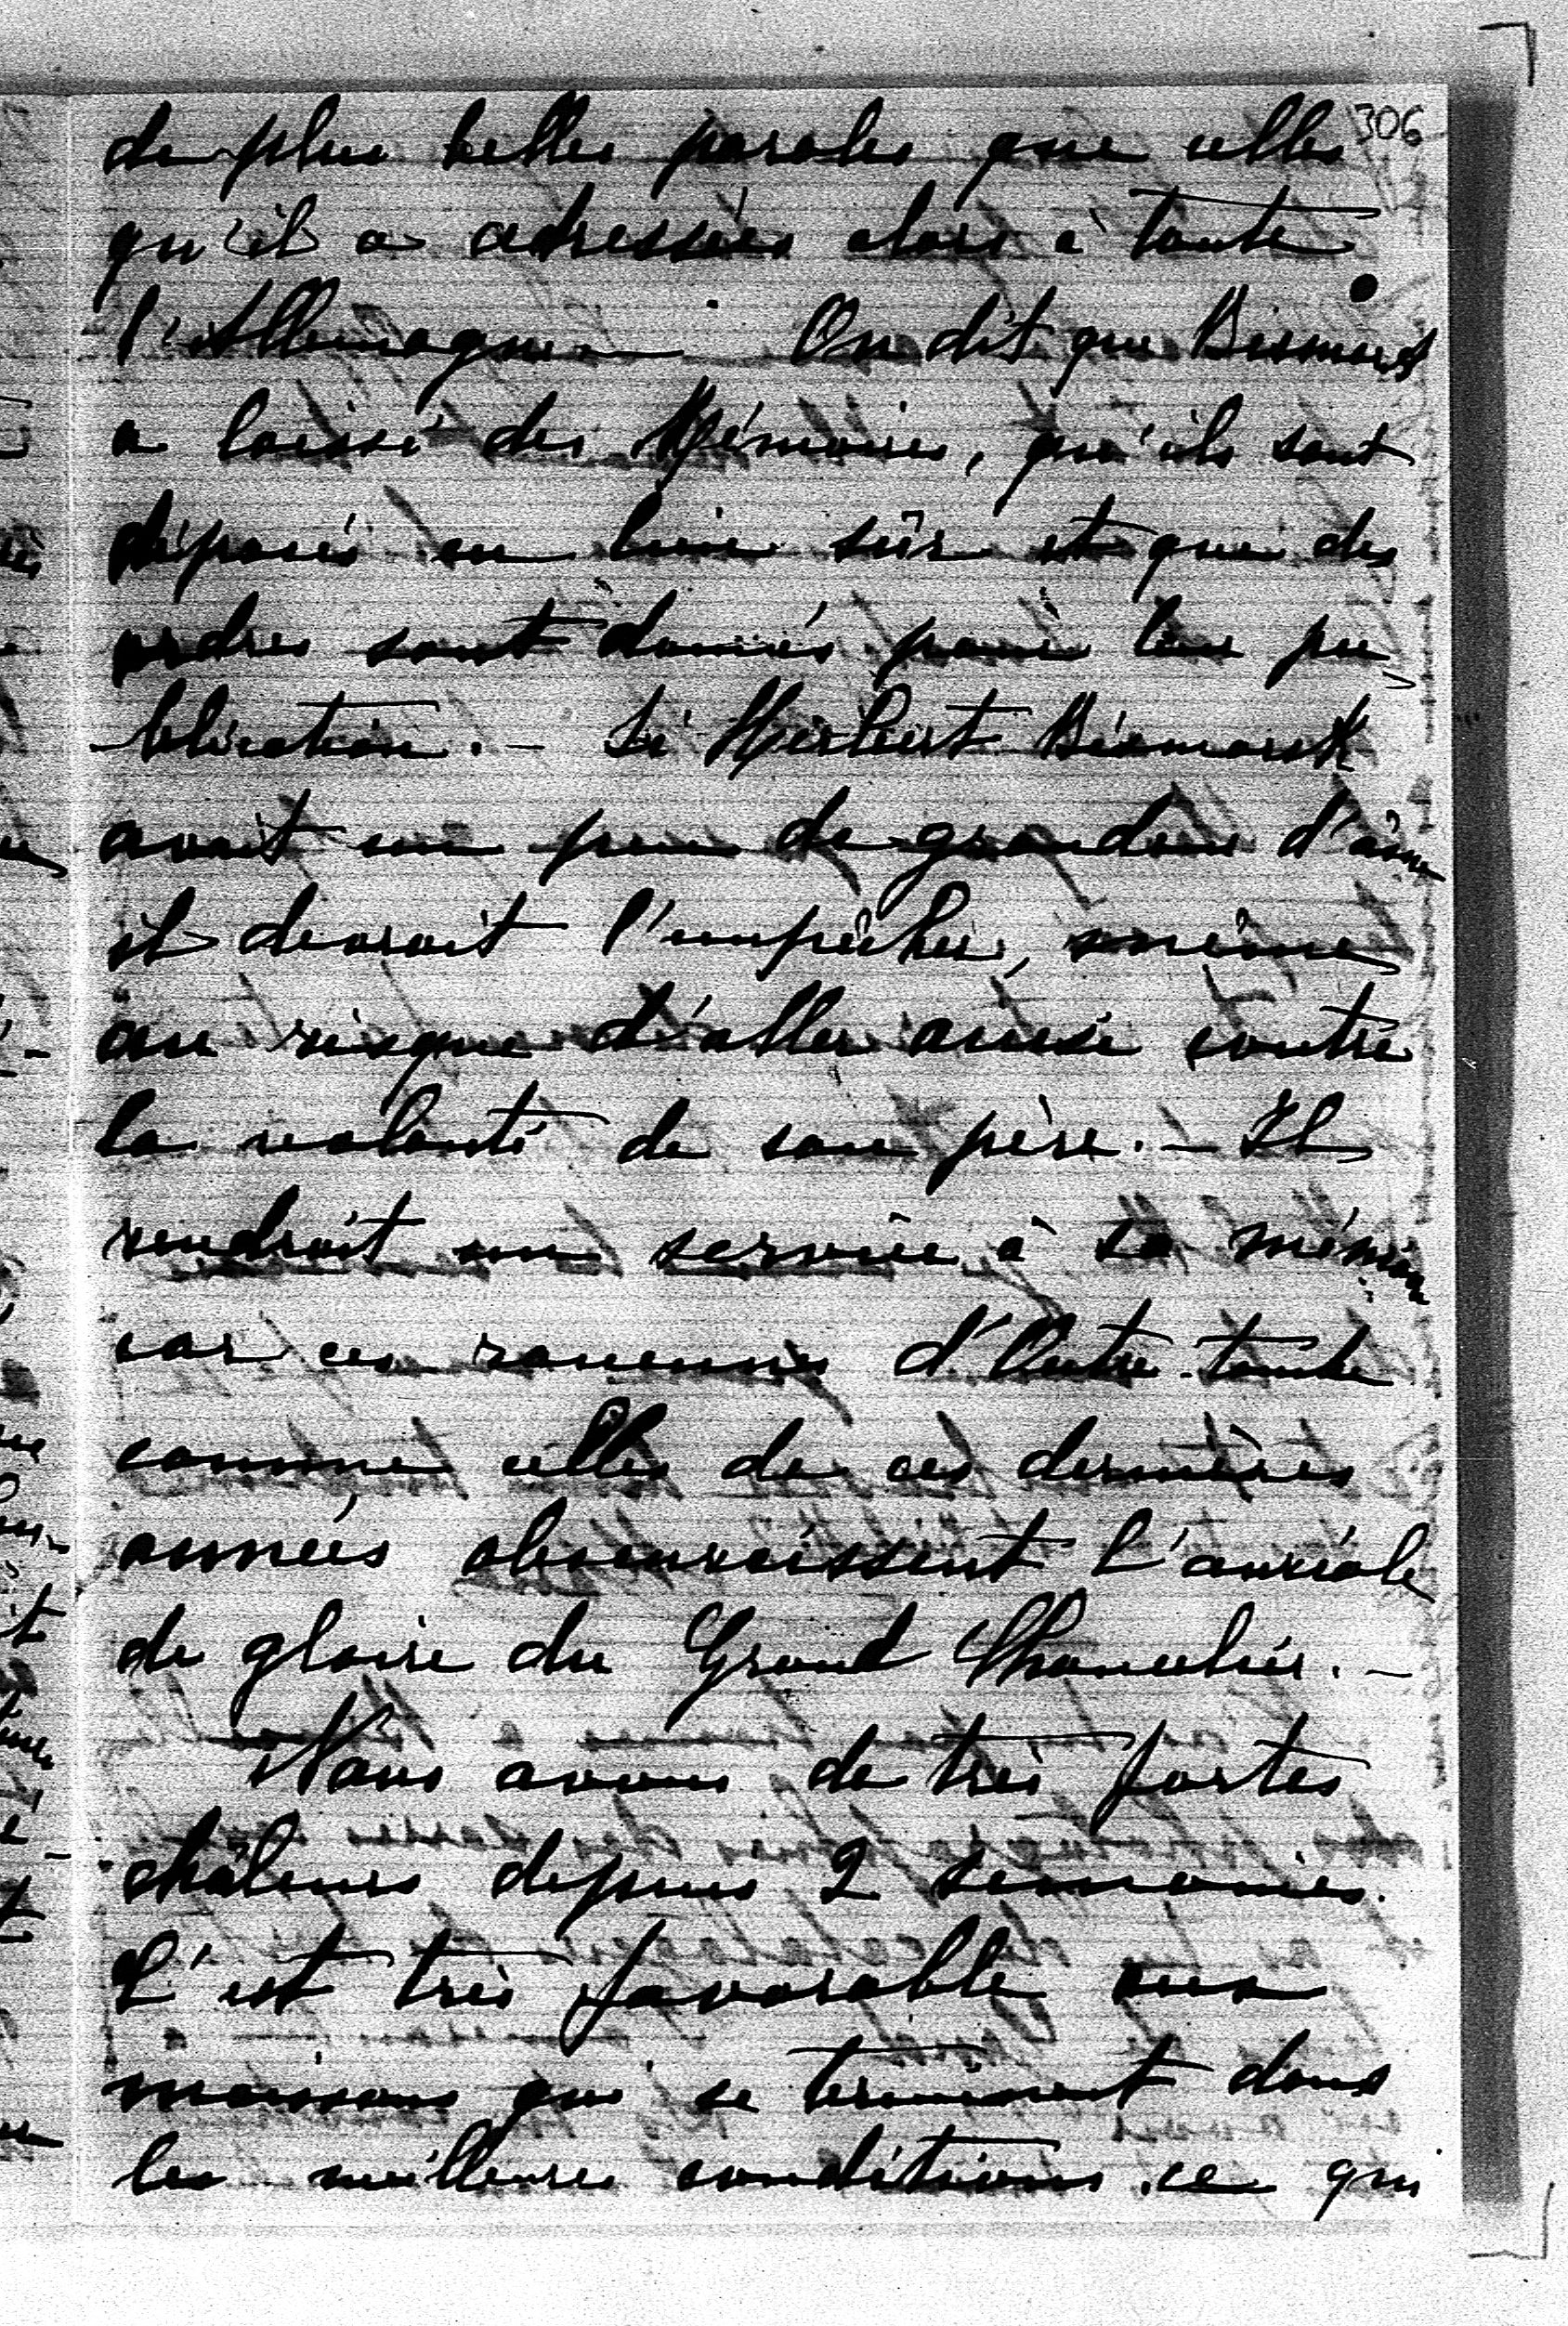 306
de plus belles paroles que celles
qu'il a adressées alors à toute
l'Allemagne. — On dit que Bismarck
a laissé des Mémoires, qu'ils sont
déposés en lieu sûr et que des
ordres sont donnés pour leur pu-
-blication. — Si Herbert Bismarck
avait un peu de grandeur d'âme
il devrait l'empêcher, même
au risque d'aller ainsi contre
la volonté de son père. — Il
rendrait un service à sa mémoire
car ces rancunes d'Outre-tombe
comme celles de ces dernières
années obscurcissent l'auréole
de gloire du Grand Chancelier. —
Nous avons de très fortes
châleurs depuis 2 semaines.
C'est très favorable aux
moissons qui se terminent dans
les meilleures conditions ce qui